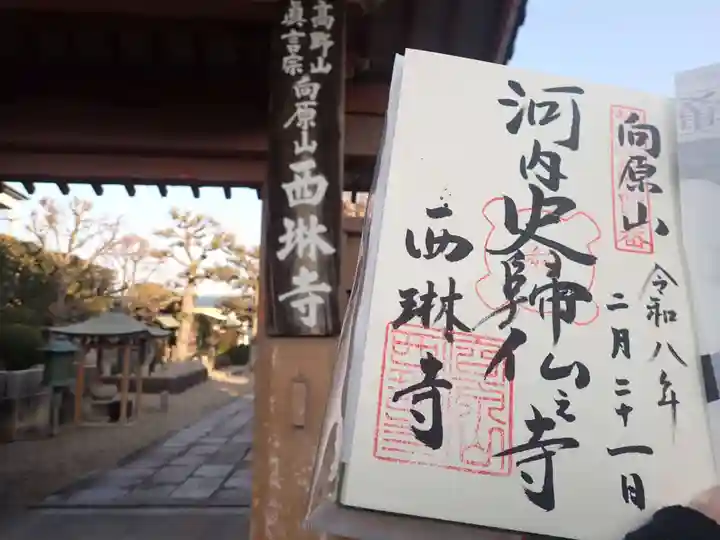 高野山
眞言宗
向原山
西琳寺
向原山
令和八年
二月二十一日
河内火歸仏之寺
西琳寺